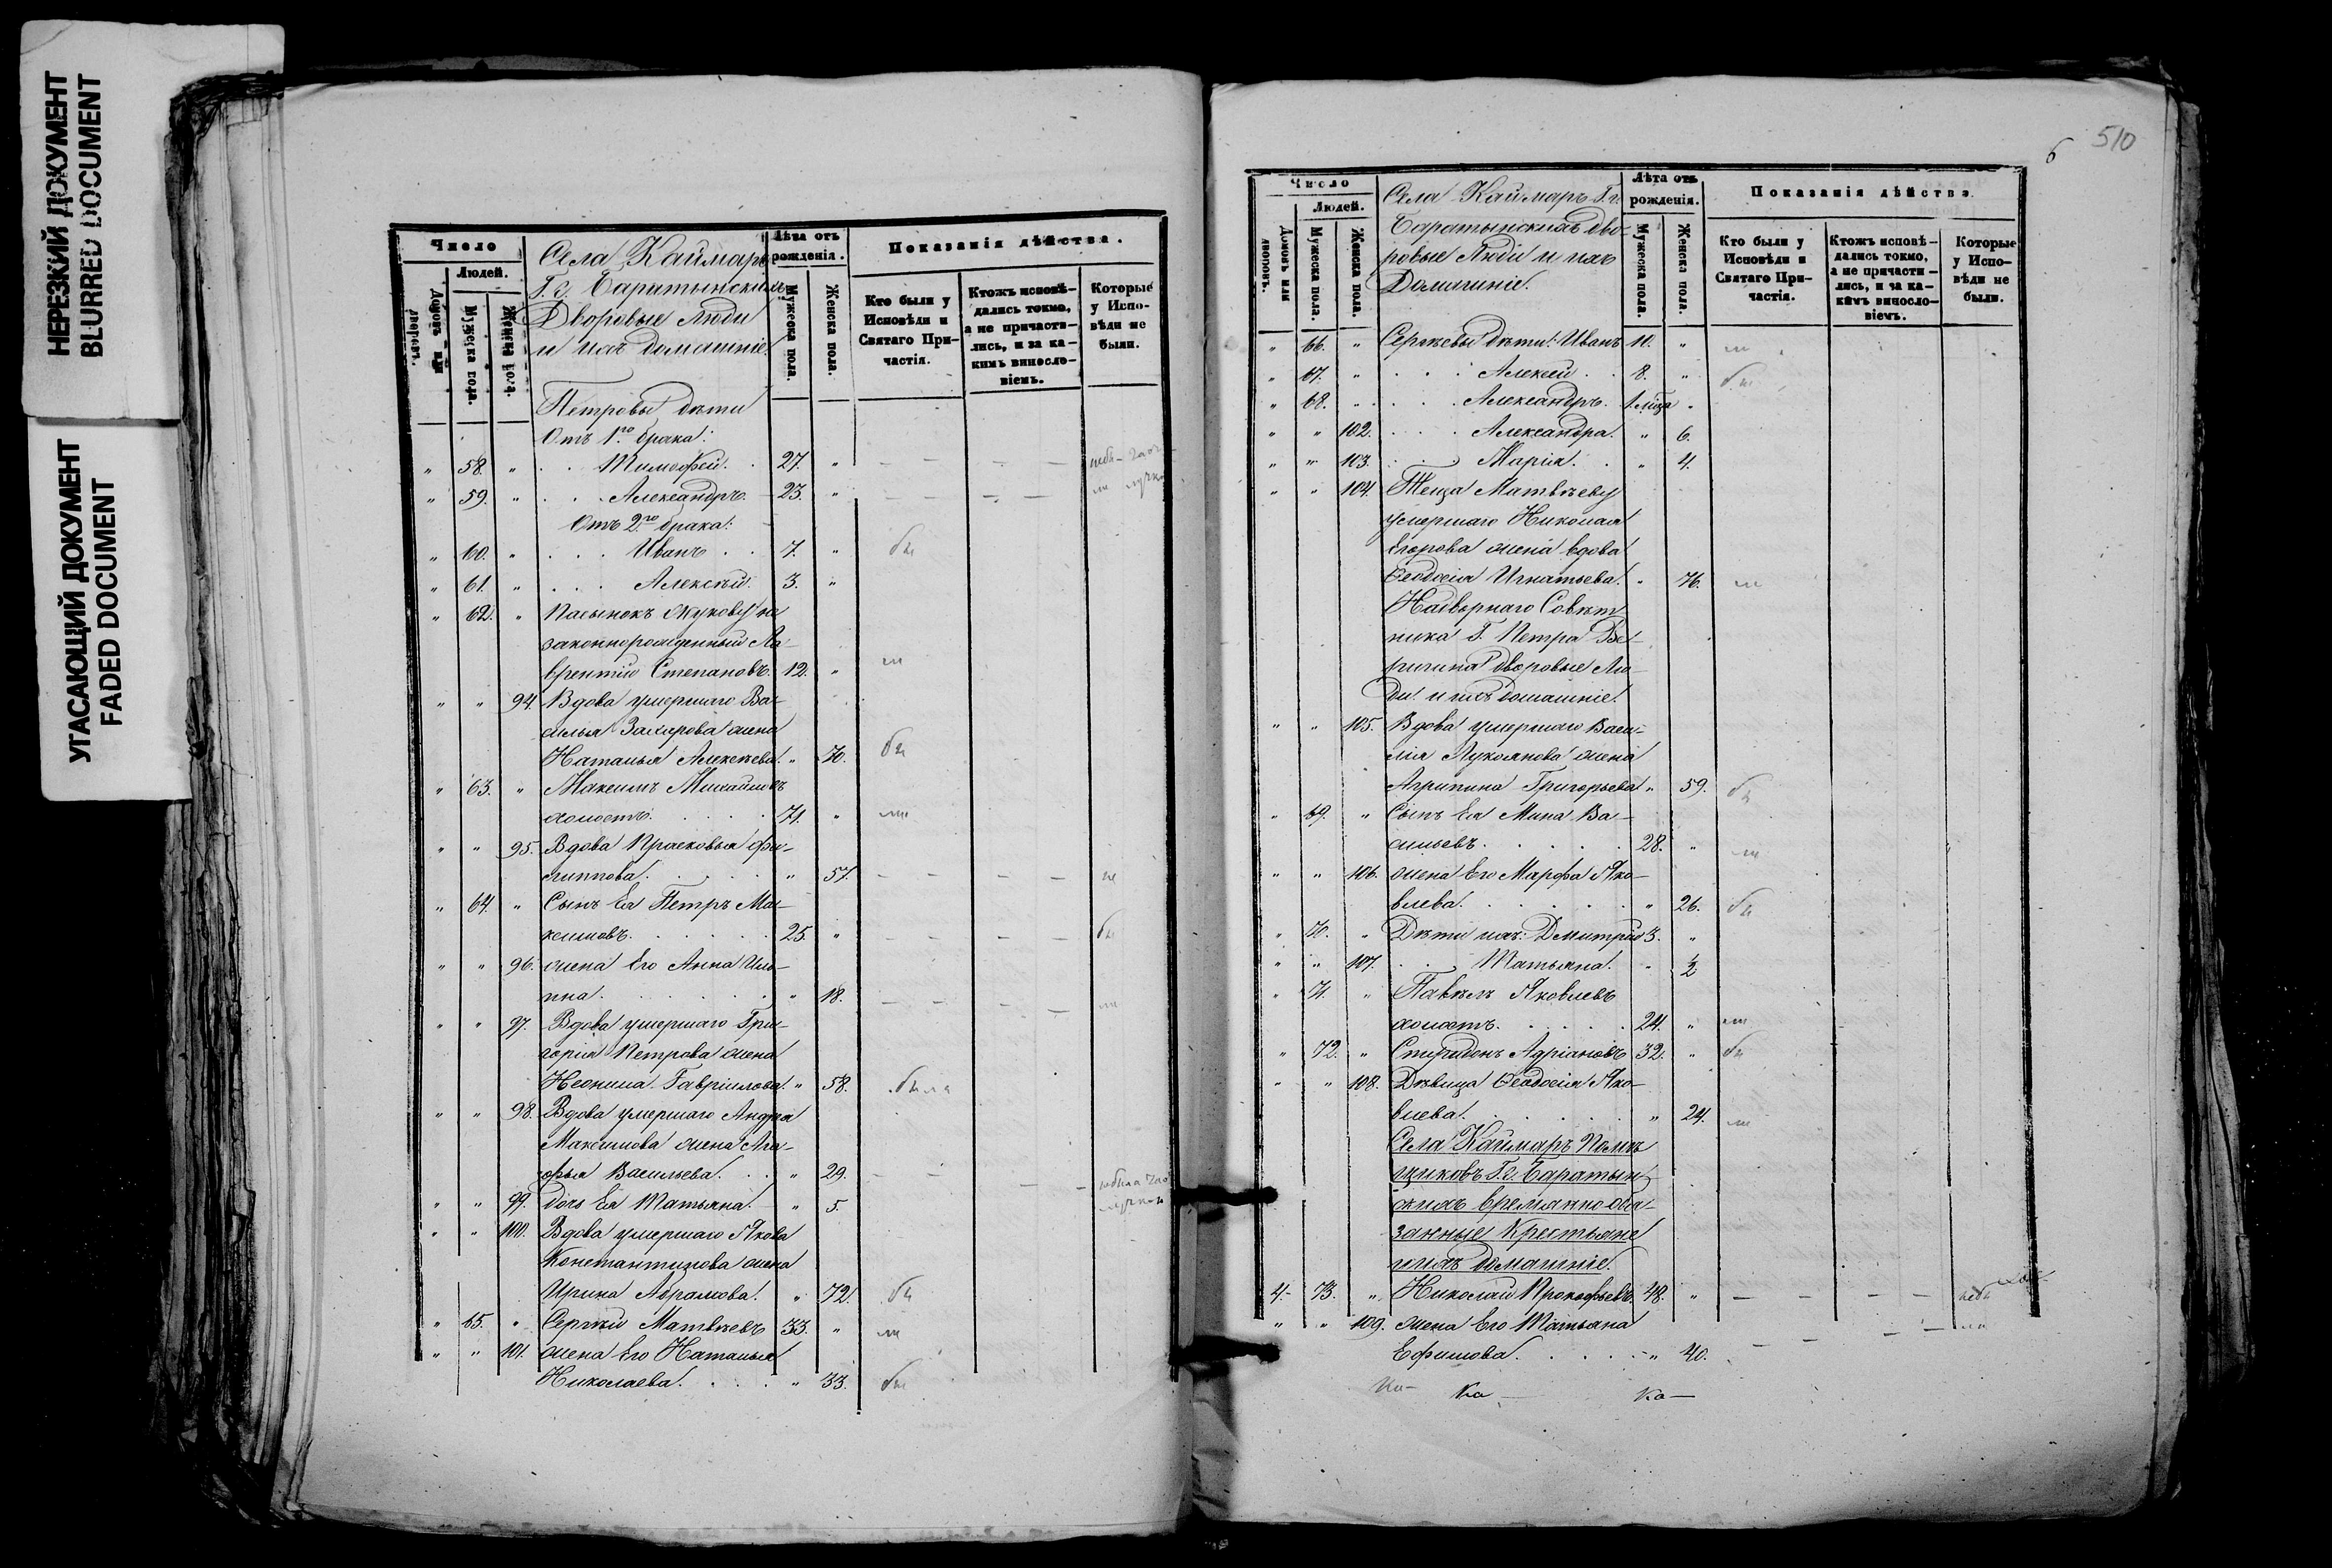 НЕРЕЗКИЙ ДОКУМЕНТ
BLURRED DOCUMENT
УГАСАЮЩИЙ ДОКУМЕНТ
FADED DOCUMENT
Число
Людей.
Домовъ или дворовъ.
Мужеска пола.
Женска пола.
Села Каймаръ
Г.г. Баратынскихъ
Дворовые люди
и ихъ домашніе.
Лѣта отъ рожденія.
Мужеска пола.
Женска пола.
Показанія дѣйства.
Кто были у Исповѣди и Святаго Причастія.
Ктожъ исповѣдались токмо, а не причастились, и за какимъ винословіемъ.
Которые у Исповѣди не были.
Петровы дѣти
Отъ 1го брака:
" 58. " Тимофей. 27. "
" 59. " Александръ. 23. "
Отъ 2го брака:
" 60. " Иванъ 7. " бы
" 61. " Алексѣй. 3. "
" 62. " Пасынокъ Жукову не
законнорожденный Ла-
врентій Степановъ. 12. "
" " 94. Вдова умершаго Ва-
силья Захарова жена
Наталья Алексѣева. " 70. бы
" 63. " Максимъ Михайловъ
холостъ. 71. "
" " 95. Вдова Прасковья Фи-
липпова. " 57.
" 64. " Сынъ Ея Петръ Ма-
ксимовъ. 25. " бы
" " 96. жена Его Анна Иль-
ина. " 18.
" " 97. Вдова умершаго Гри-
горія Петрова жена
Неонила Гавріилова. " 58. была
" " 98. Вдова умершаго Андрея
Максимова жена Ага-
фья Васильева. " 29.
" " 99. дочь Ея Татьяна. " 5.
" " 100. Вдова умершаго Якова
Константинова жена
Ирина Абрамова. " 72. бы
" 65. " Сергѣй Матвѣевъ 33. " ли
" " 101. жена Его Наталья
Николаева. " 33. бы
6 510
Число
Людей.
Домовъ или дворовъ.
Мужеска пола.
Женска пола.
Села Каймаръ Г.г.
Баратынскихъ дво-
ровые Люди и ихъ
Домашніе.
Лѣта отъ рожденія.
Мужеска пола.
Женска пола.
Показанія дѣйства.
Кто были у Исповѣди и Святаго Причастія.
Ктожъ исповѣдались токмо, а не причастились, и за какимъ винословіемъ.
Которые у Исповѣди не были.
" 66. " Сергѣевы дѣти: Иванъ 10. "
" 67. " Алексѣй 8. " бы
" 68. " Александръ. "
" " 102. Александра. " 6.
" " 103. Марія. " 4.
" " 104. Теща Матвѣеву
умершаго Николая
Егорова жена вдова
Ѳеодосія Игнатьева. " 76.
Надворнаго Совѣт-
ника Г. Петра
дворовые Лю-
ди и ихъ домашніе.
" " 105. Вдова умершаго Васи-
лія Лукоянова жена
Агрипина Григорьева " 59. бы
" 69. " Сынъ Ея Мина Ва-
сильевъ. 28. " ли
" " 106. жена Его Марфа Яко-
влева. " 26. бы
" 70. " Дѣти ихъ: Дмитрій 3. "
" " 107. Татьяна. " 1/2
" 71. " Павелъ Яковлевъ
холостъ. 24. "
" 72. " Спиридонъ Адріановъ 32. " бы
" " 108. Дѣвица Ѳеодосія Яко-
влева. " 24. ли
Села Каймаръ Помѣ
щиковъ Г.г. Баратын-
скихъ временно-обя-
занные Крестьяне
и ихъ домашніе.
4. 73. " Николай Прокофьевъ. 48. "
" " 109. жена Его Татьяна
Ефимова. " 40.
Ка- Ка- Ка-